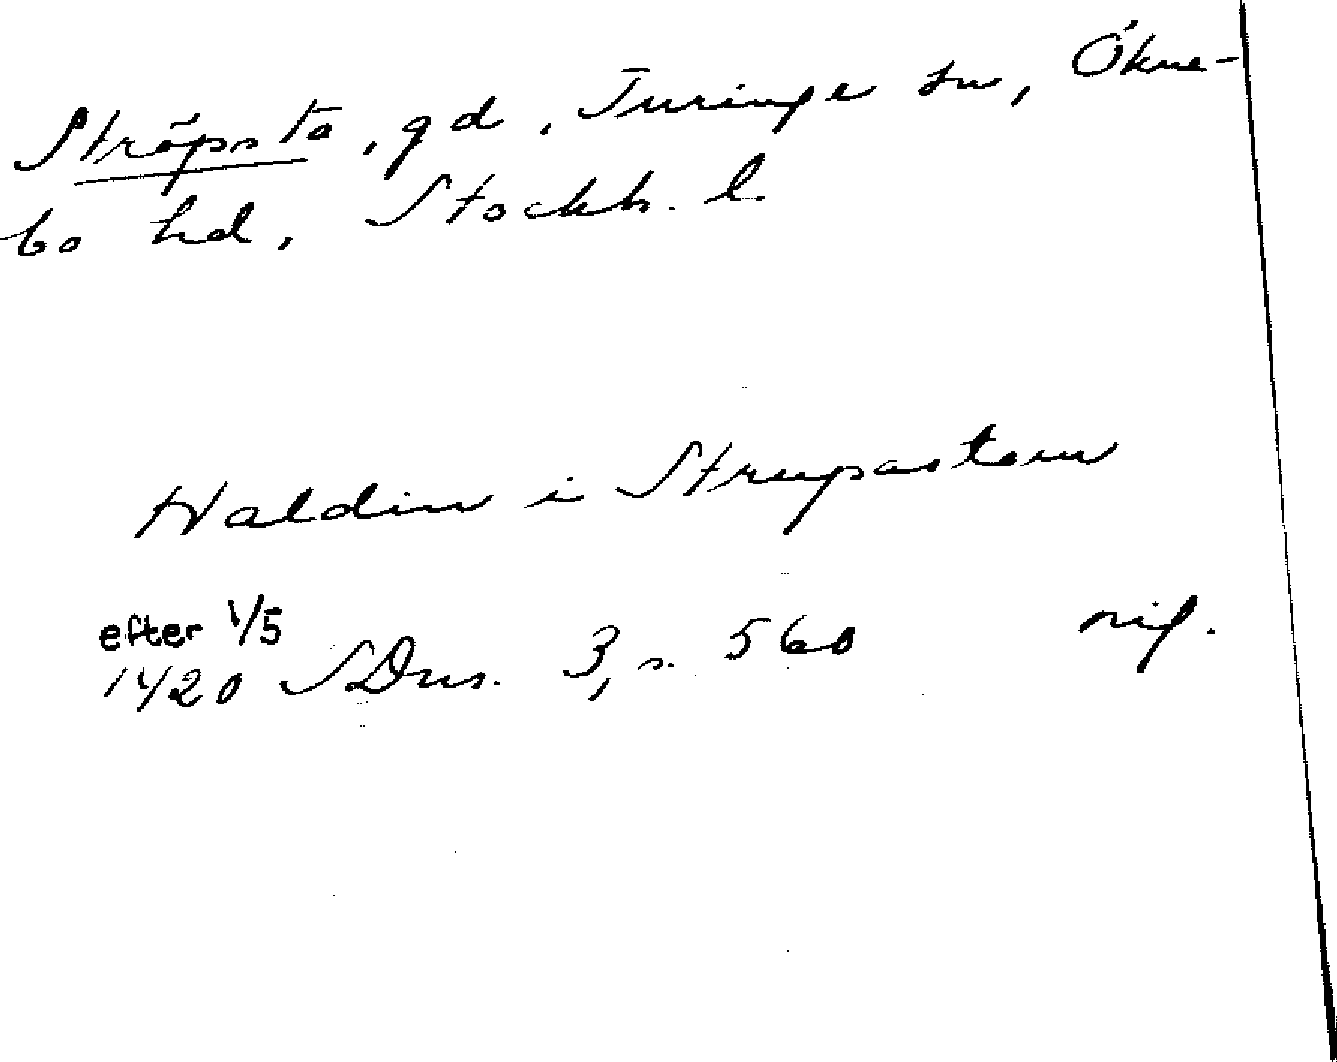 Ströpsta, gd, Turinge sn, Ökne-
bo hd, Stockh. l.
Haldin i Strupastom
efter 1/5
1420 SDns. 3, s. 560